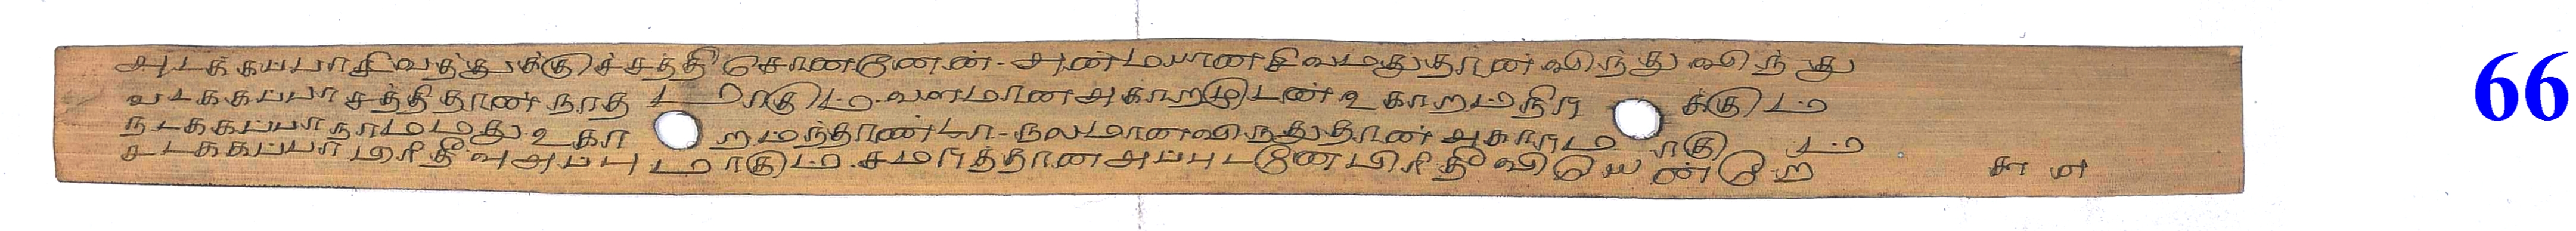 அடக்கப்பாசிவத்துக்குச்சத்தி சொன்னேன் - அண்மயான சிவமதுதான் விந்து விந்து 66
வடக்கப்பா சத்திதான் நாத மாகும் வளமான அகாறமுடன் உகாறம் நிற் க்கும்
நடக்கப்பா நாமமது உகா றமந்தான்டா - நலமான விந்துதான் அகாரமாகும்
சடக்கப்பா பிரிதீவு அப்பு மாகும் சமர்த்தான அப்புடனே பிரிதீவியென்றே